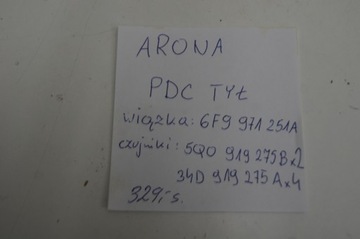 ARONA
PDC TYŁ
wiązka: 6F9 971 251A
czujniki: 5Q0 919 275B x2
34D 919 275 A x4
329,- s.